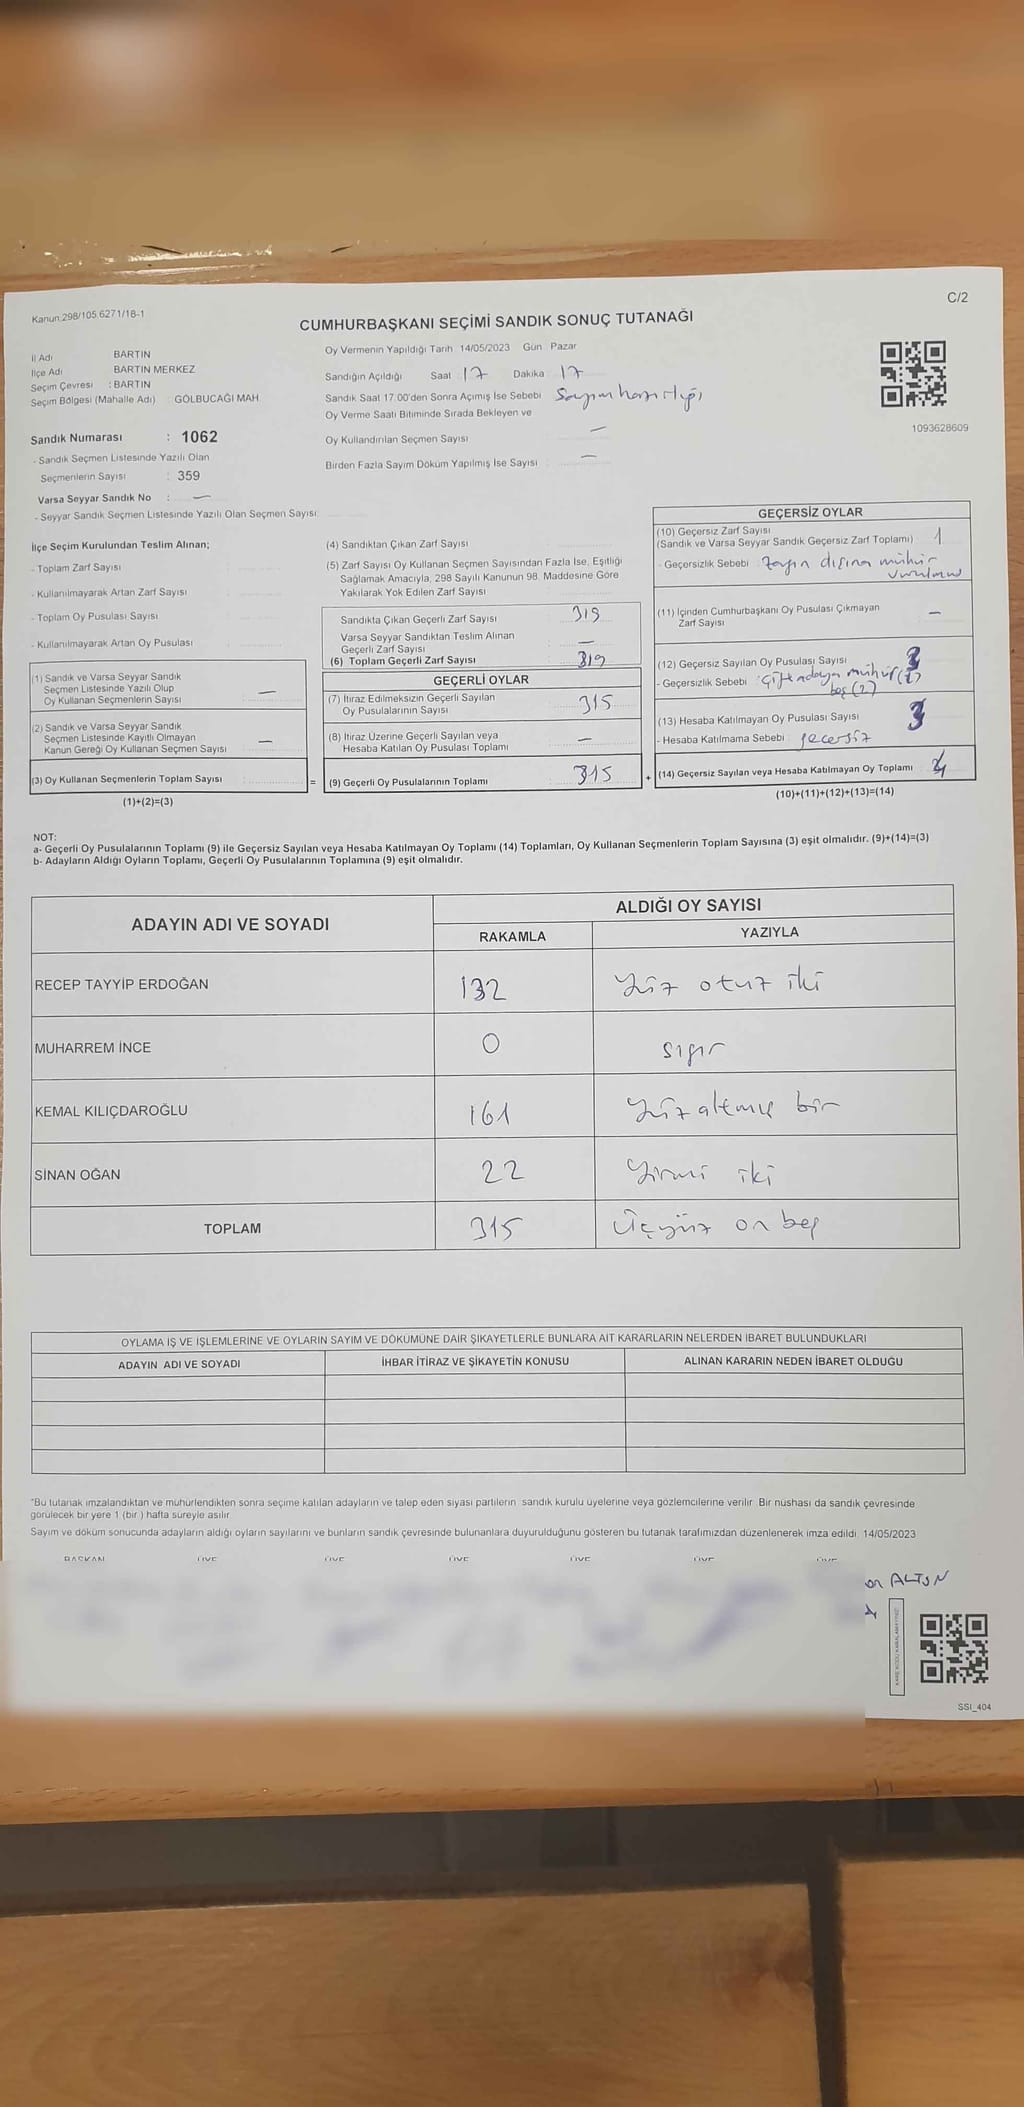 Kanun:298/105 6271/18-1
C/2
CUMHURBAŞKANI SEÇİMİ SANDIK SONUÇ TUTANAĞI
İl Adı BARTIN
İlçe Adı BARTIN MERKEZ
Seçim Çevresi : BARTIN
Seçim Bölgesi (Mahalle Adı) : GÖLBUCAĞI MAH.
Sandık Numarası : 1062
- Sandık Seçmen Listesinde Yazılı Olan
Seçmenlerin Sayısı : 359
Varsa Seyyar Sandık No : —
- Seyyar Sandık Seçmen Listesinde Yazılı Olan Seçmen Sayısı:
Oy Vermenin Yapıldığı Tarih 14/05/2023 Gün Pazar
Sandığın Açıldığı Saat 17 Dakika 17
Sandık Saat 17.00'den Sonra Açımış İse Sebebi Sayım hazırlığı
Oy Verme Saati Bitiminde Sırada Bekleyen ve
Oy Kullandırılan Seçmen Sayısı —
Birden Fazla Sayım Döküm Yapılmış İse Sayısı —
1093628609
İlçe Seçim Kurulundan Teslim Alınan;
- Toplam Zarf Sayısı
- Kullanılmayarak Artan Zarf Sayısı
- Toplam Oy Pusulası Sayısı
- Kullanılmayarak Artan Oy Pusulası
(1) Sandık ve Varsa Seyyar Sandık
Seçmen Listesinde Yazılı Olup
Oy Kullanan Seçmenlerin Sayısı —
(2) Sandık ve Varsa Seyyar Sandık
Seçmen Listesinde Kayıtlı Olmayan
Kanun Gereği Oy Kullanan Seçmen Sayısı —
(3) Oy Kullanan Seçmenlerin Toplam Sayısı
(1)+(2)=(3)
(4) Sandıktan Çıkan Zarf Sayısı
(5) Zarf Sayısı Oy Kullanan Seçmen Sayısından Fazla İse, Eşitliği
Sağlamak Amacıyla, 298 Sayılı Kanunun 98. Maddesine Göre
Yakılarak Yok Edilen Zarf Sayısı
Sandıkta Çıkan Geçerli Zarf Sayısı 319
Varsa Seyyar Sandıktan Teslim Alınan
Geçerli Zarf Sayısı —
(6) Toplam Geçerli Zarf Sayısı 319
GEÇERLİ OYLAR
(7) İtiraz Edilmeksizin Geçerli Sayılan
Oy Pusulalarının Sayısı 315
(8) İtiraz Üzerine Geçerli Sayılan veya
Hesaba Katılan Oy Pusulası Toplamı —
= (9) Geçerli Oy Pusulalarının Toplamı 315 +
GEÇERSİZ OYLAR
(10) Geçersiz Zarf Sayısı
(Sandık ve Varsa Seyyar Sandık Geçersiz Zarf Toplamı) 1
- Geçersizlik Sebebi dışına mühür
(11) İçinden Cumhurbaşkanı Oy Pusulası Çıkmayan
Zarf Sayısı —
(12) Geçersiz Sayılan Oy Pusulası Sayısı 3
- Geçersizlik Sebebi Çift adaya mühür
boş (2)
(13) Hesaba Katılmayan Oy Pusulası Sayısı 3
- Hesaba Katılmama Sebebi geçersiz
(14) Geçersiz Sayılan veya Hesaba Katılmayan Oy Toplamı 4
(10)+(11)+(12)+(13)=(14)
NOT:
a- Geçerli Oy Pusulalarının Toplamı (9) ile Geçersiz Sayılan veya Hesaba Katılmayan Oy Toplamı (14) Toplamları, Oy Kullanan Seçmenlerin Toplam Sayısına (3) eşit olmalıdır. (9)+(14)=(3)
b- Adayların Aldığı Oyların Toplamı, Geçerli Oy Pusulalarının Toplamına (9) eşit olmalıdır.
ADAYIN ADI VE SOYADI ALDIĞI OY SAYISI
RAKAMLA YAZIYLA
RECEP TAYYİP ERDOĞAN 132 Yüz otuz iki
MUHARREM İNCE 0 sıfır
KEMAL KILIÇDAROĞLU 161 Yüz altmış bir
SİNAN OĞAN 22 Yirmi iki
TOPLAM 315 Üçyüz on beş
OYLAMA İŞ VE İŞLEMLERİNE VE OYLARIN SAYIM VE DÖKÜMÜNE DAİR ŞİKAYETLERLE BUNLARA AİT KARARLARIN NELERDEN İBARET BULUNDUKLARI
ADAYIN ADI VE SOYADI İHBAR İTİRAZ VE ŞİKAYETİN KONUSU ALINAN KARARIN NEDEN İBARET OLDUĞU
*Bu tutanak imzalandıktan ve mühürlendikten sonra seçime katılan adayların ve talep eden siyasi partilerin sandık kurulu üyelerine veya gözlemcilerine verilir. Bir nüshası da sandık çevresinde
görülecek bir yere 1 (bir) hafta süreyle asılır.
Sayım ve döküm sonucunda adayların aldığı oyların sayılarını ve bunların sandık çevresinde bulunanlara duyurulduğunu gösteren bu tutanak tarafımızdan düzenlenerek imza edildi. 14/05/2023
BAŞKAN ÜYE ÜYE ÜYE ÜYE ÜYE ÜYE
ALTUN
KARE KODU KARALAMAYINIZ
SSI_404